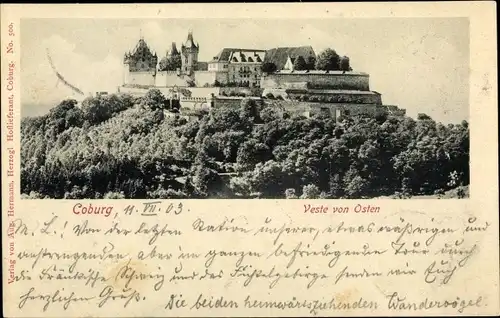 Verlag von Aug. Hermann, Herzogl Hoflieferant, Coburg. No. 500.
Coburg, 11. VII. 03.
Veste von Osten
M. L.! Von der letzten Station unserer, etwas währigen und
anstrengenden aber im ganzen befriedigenden Tour durch
die Fränkische Schweiz und das Fichtelgebirge senden wir Euch
herzlichen Gruß.
Die beiden heimwärtsziehenden Wandervögel.